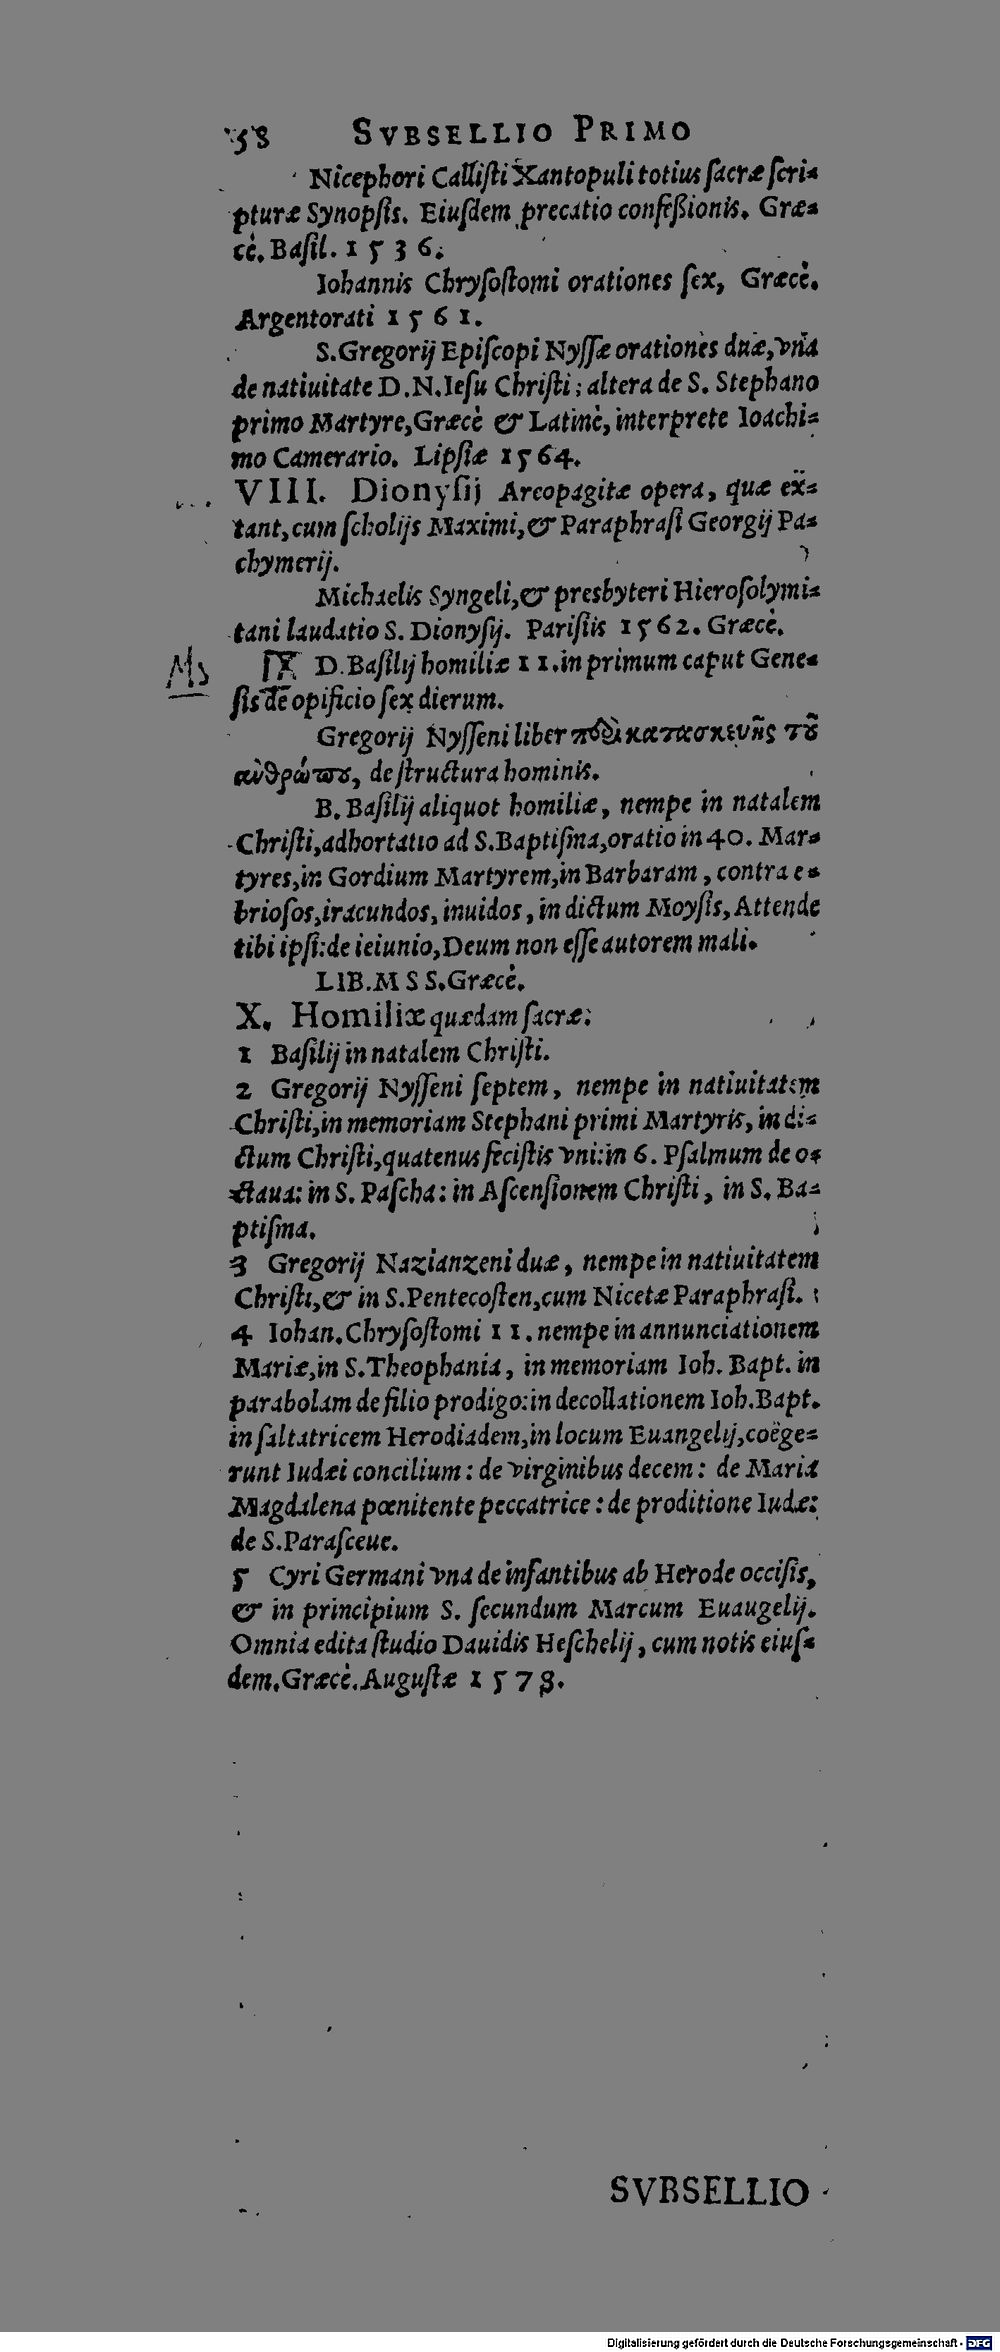 58 SVBSELLIO PRIMO
Nicephori Calliſti Xantopuli totius ſacræ ſcri-
pturæ Synopſis. Eiuſdem precatio confeſſionis. Græ-
cè. Baſil. 1536.
Iohannis Chryſoſtomi orationes ſex, Græcè.
Argentorati 1561.
S. Gregorij Epiſcopi Nyſſæ orationes duæ, vna
de natiuitate D.N. Ieſu Chriſti; altera de S. Stephano
primo Martyre, Græcè & Latinè, interprete Ioachi-
mo Camerario. Lipſiæ 1564.
VIII. Dionyſij Areopagitæ opera, quæ ex-
tant, cum ſcholijs Maximi, & Paraphraſi Georgij Pa-
chymerij.
Michaelis Syngeli, & presbyteri Hieroſolymi-
tani laudatio S. Dionyſij. Pariſiis 1562. Græcè.
Ms IX D. Baſilij homiliæ 11. in primum caput Gene-
ſis de opificio ſex dierum.
Gregorij Nyſſeni liber περὶ κατασκευῆς τοῦ
ανθρώπου, de ſtructura hominis.
B. Baſilij aliquot homiliæ, nempe in natalem
Chriſti, adhortatio ad S. Baptiſma, oratio in 40. Mar-
tyres, in Gordium Martyrem, in Barbaram, contra e-
brioſos, iracundos, inuidos, in dictum Moyſis, Attende
tibi ipſi: de ieiunio, Deum non eſſe autorem mali.
LIB. MSS. Græcè.
X. Homiliæ quædam ſacræ:
1 Baſilij in natalem Chriſti.
2 Gregorij Nyſſeni ſeptem, nempe in natiuitatem
Chriſti, in memoriam Stephani primi Martyris, in di-
ctum Chriſti, quatenus feciſtis vni: in 6. Pſalmum de o-
ctaua: in S. Paſcha: in Aſcenſionem Chriſti, in S. Ba-
ptiſma.
3 Gregorij Nazianzeni duæ, nempe in natiuitatem
Chriſti, & in S. Pentecoſten, cum Nicetæ Paraphraſi.
4 Iohan. Chryſoſtomi 11. nempe in annunciationem
Mariæ, in S. Theophania, in memoriam Ioh. Bapt. in
parabolam de filio prodigo: in decollationem Ioh. Bapt.
in ſaltatricem Herodiadem, in locum Euangelij, coëge-
runt Iudæi concilium: de virginibus decem: de Maria
Magdalena pœnitente peccatrice: de proditione Iudæ:
de S. Paraſceue.
5 Cyri Germani vna de infantibus ab Herode occiſis,
& in principium S. ſecundum Marcum Euaugelij.
Omnia edita ſtudio Dauidis Heſchelij, cum notis eiuſ-
dem. Græcè. Auguſtæ 1578.
SVBSELLIO
Digitalisierung gefördert durch die Deutsche Forschungsgemeinschaft - DFG